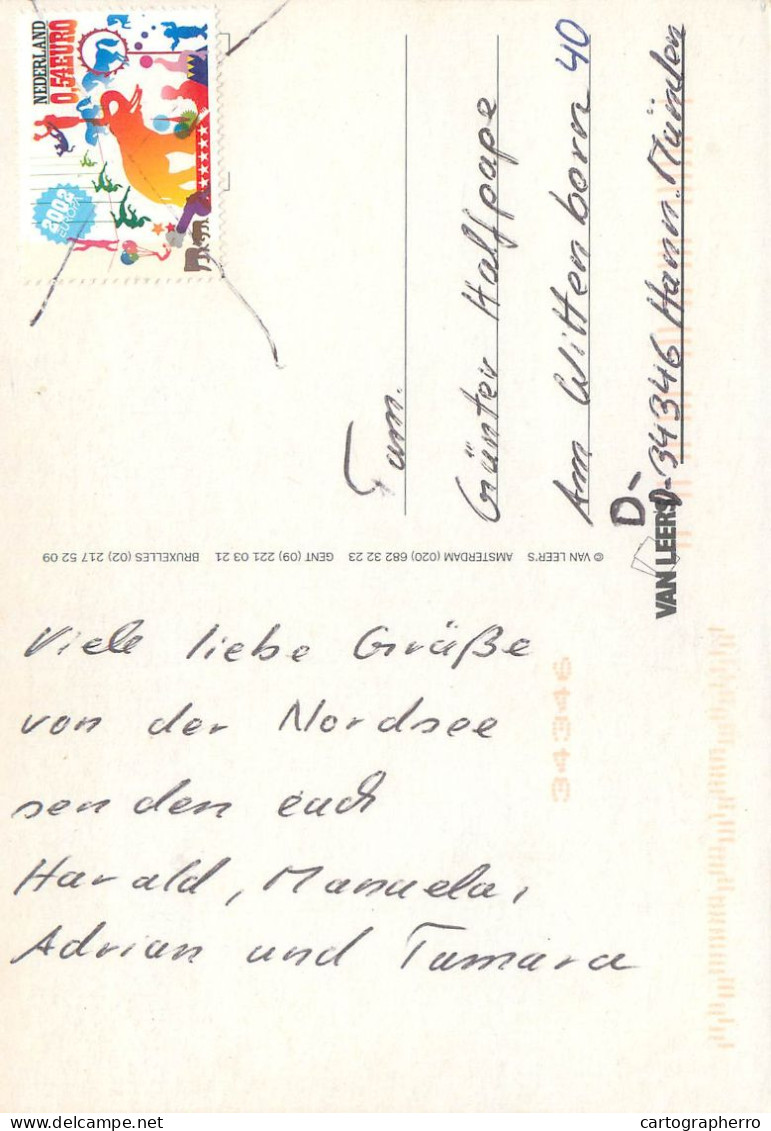 NEDERLAND
0,54EURO
2002
EUROPA
Fam.
Günter Halfpape
Am Wittenborn 40
D-
D-34346 Hann. Münden
© VAN LEER'S AMSTERDAM (020) 682 32 23 GENT (09) 221 03 21 BRUXELLES (02) 217 52 09
VAN LEER'S
Viele liebe Grüße
von der Nordsee
senden euch
Harald, Manuela,
Adrian und Tamara
34346
www.delcampe.net
cartographerro